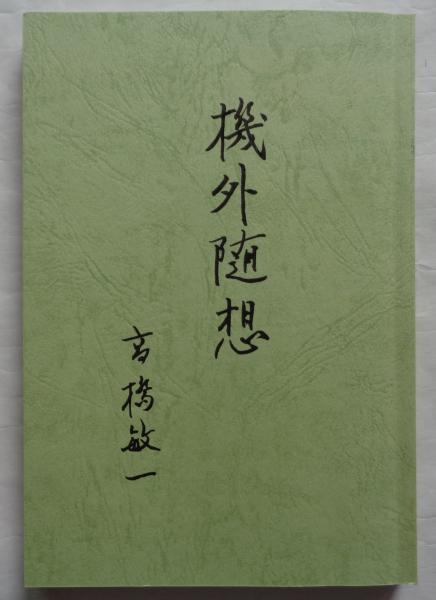 機外随想
高橋敏一